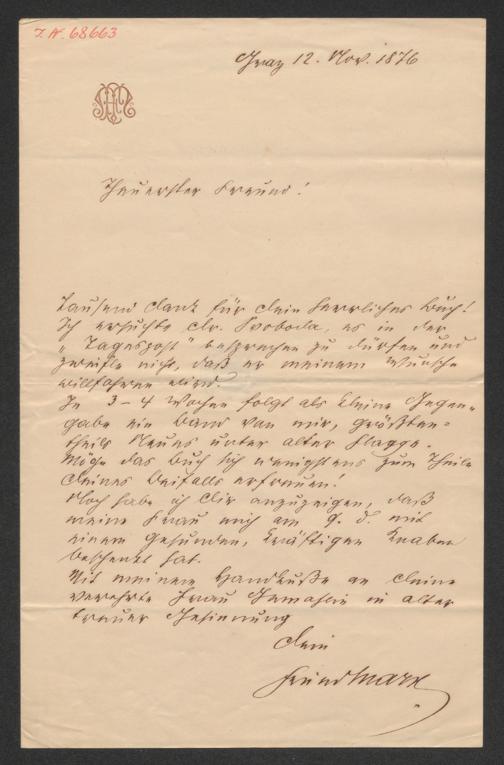 I. N. 68663
Graz 12. Nov. 1876
Theuerster Freund!
Tausend Dank für Dein herrliches Buch!
Ich ersuchte Dr. Svoboda, es in der
„Tagespost" besprechen zu dürfen und
zweifle nicht, daß er meinem Wunsche
willfahren wird.
In 3-4 Wochen folgt als kleine Gegen-
gabe ein Band von mir, größten-
theils Neues unter alter Flagge.
Möge das Buch sich wenigstens zum Theile
Deines Beifalls erfreuen!
Noch habe ich Dir anzuzeigen, daß
meine Frau mich am 9. d. mit
einem gesunden, kräftigen Knaben
beschenkt hat.
Mit meinem Handkuße an Deine
verehrte Frau Gemahlin in alter
treuer Gesinnung
Dein